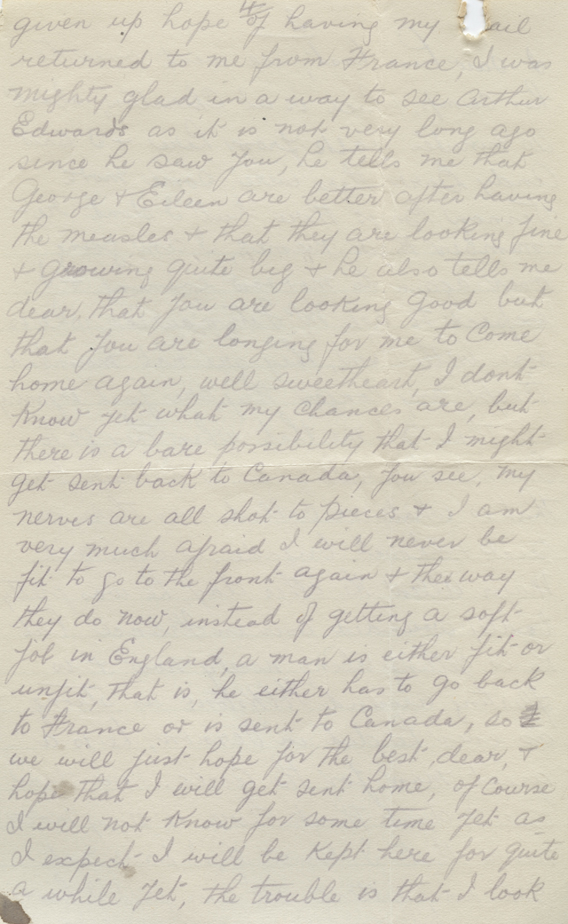 4/
given up hope of having my ail
returned to me from France, I was
mighty glad in a way to see Arthur
Edwards as it is not very long ago
since he saw you, he tells me that
George & Eileen are better after having
the measles & that they are looking fine
& growing quite big & he also tells me
dear, that you are looking good but
that you are longing for me to come
home again, well sweetheart, I dont
know yet what my chances are, but
there is a bare possibility that I might
get sent back to Canada, you see, my
nerves are all shot to pieces & I am
very much afraid I will never be
fit to go to the front again & the way
they do now, instead of getting a soft
job in England, a man is either fit or
unfit, that is, he either has to go back
to France or is sent to Canada, so
we will just hope for the best, dear, &
hope that I will get sent home, of course
I will not know for some time yet as
I expect I will be kept here for quite
a while yet, the trouble is that I look